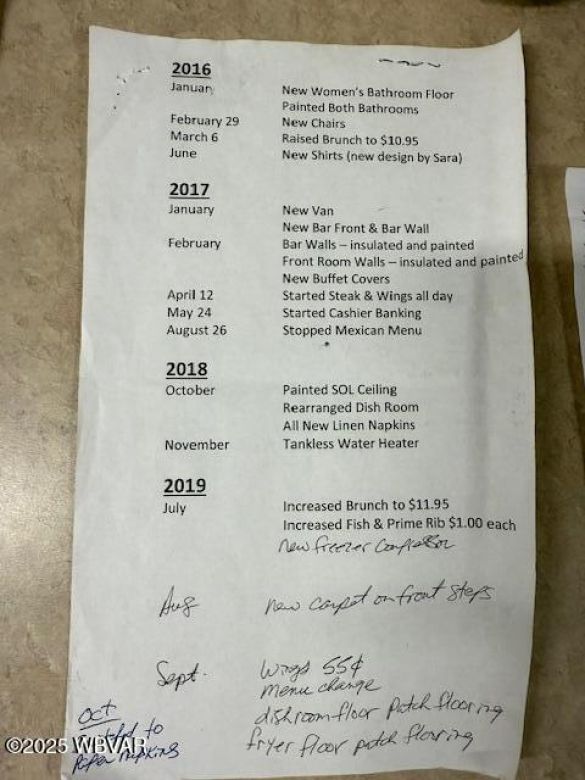 2016
January New Women's Bathroom Floor
Painted Both Bathrooms
February 29 New Chairs
March 6 Raised Brunch to $10.95
June New Shirts (new design by Sara)
2017
January New Van
New Bar Front & Bar Wall
February Bar Walls – insulated and painted
Front Room Walls – insulated and painted
New Buffet Covers
April 12 Started Steak & Wings all day
May 24 Started Cashier Banking
August 26 Stopped Mexican Menu
2018
October Painted SOL Ceiling
Rearranged Dish Room
All New Linen Napkins
November Tankless Water Heater
2019
July Increased Brunch to $11.95
Increased Fish & Prime Rib $1.00 each
new freezer Compressor
Aug new carpet on front steps
Sept. Wings 55¢
menu change
dishroom floor patch flooring
fryer floor patch flooring
Oct
to
Paper napkins
©2025 WBVAR